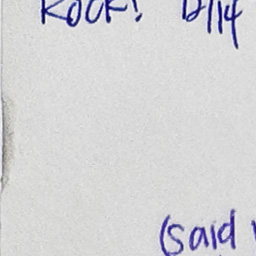 ROCK! 12/14
(said